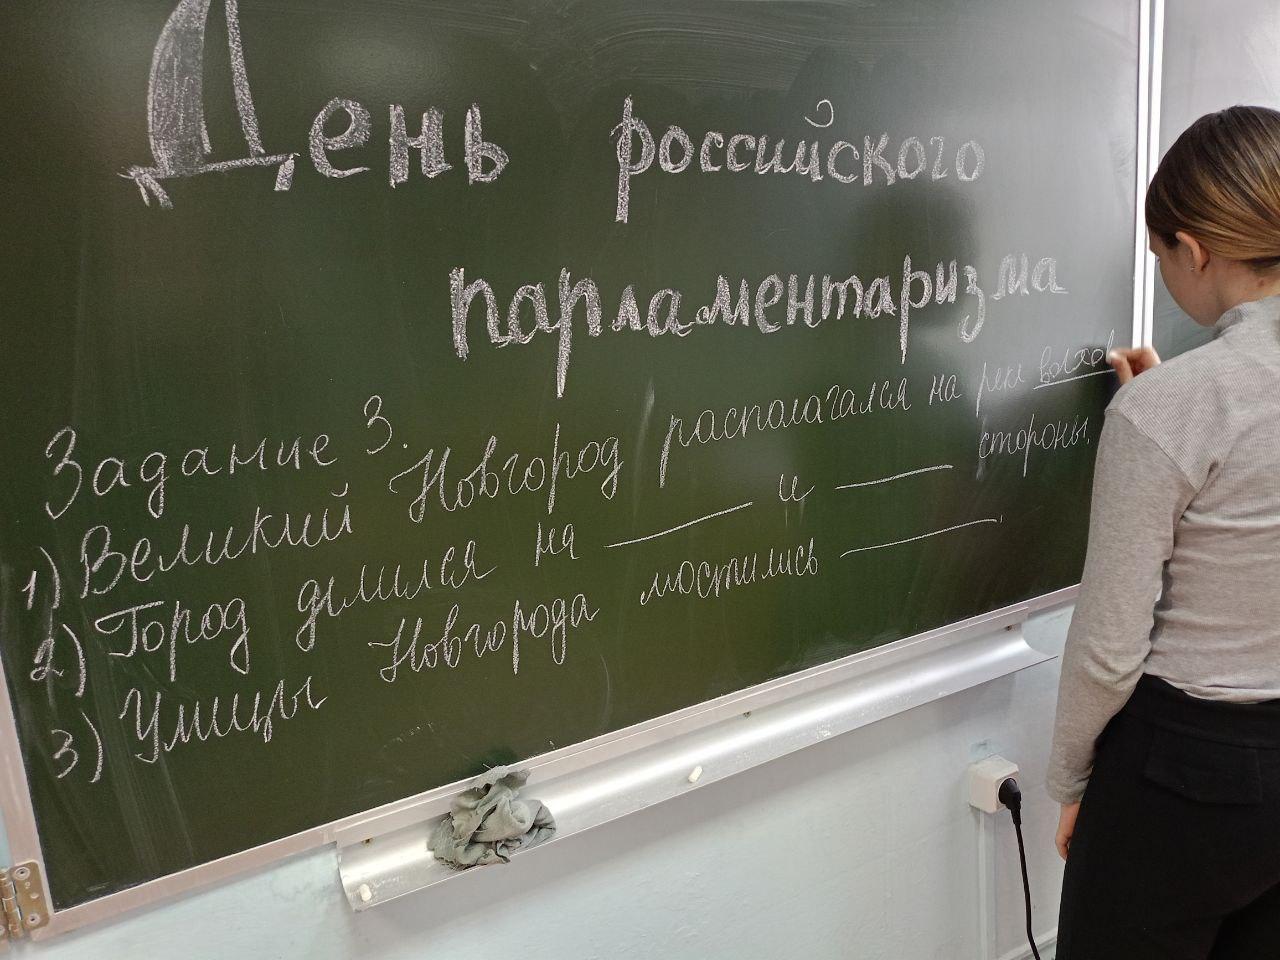 День российского
парламентаризма
Задание 3.
1) Великий Новгород располагался на реке волхов
2) Город делился на ______ и ______ стороны.
3) Улицы Новгорода мостились ______.